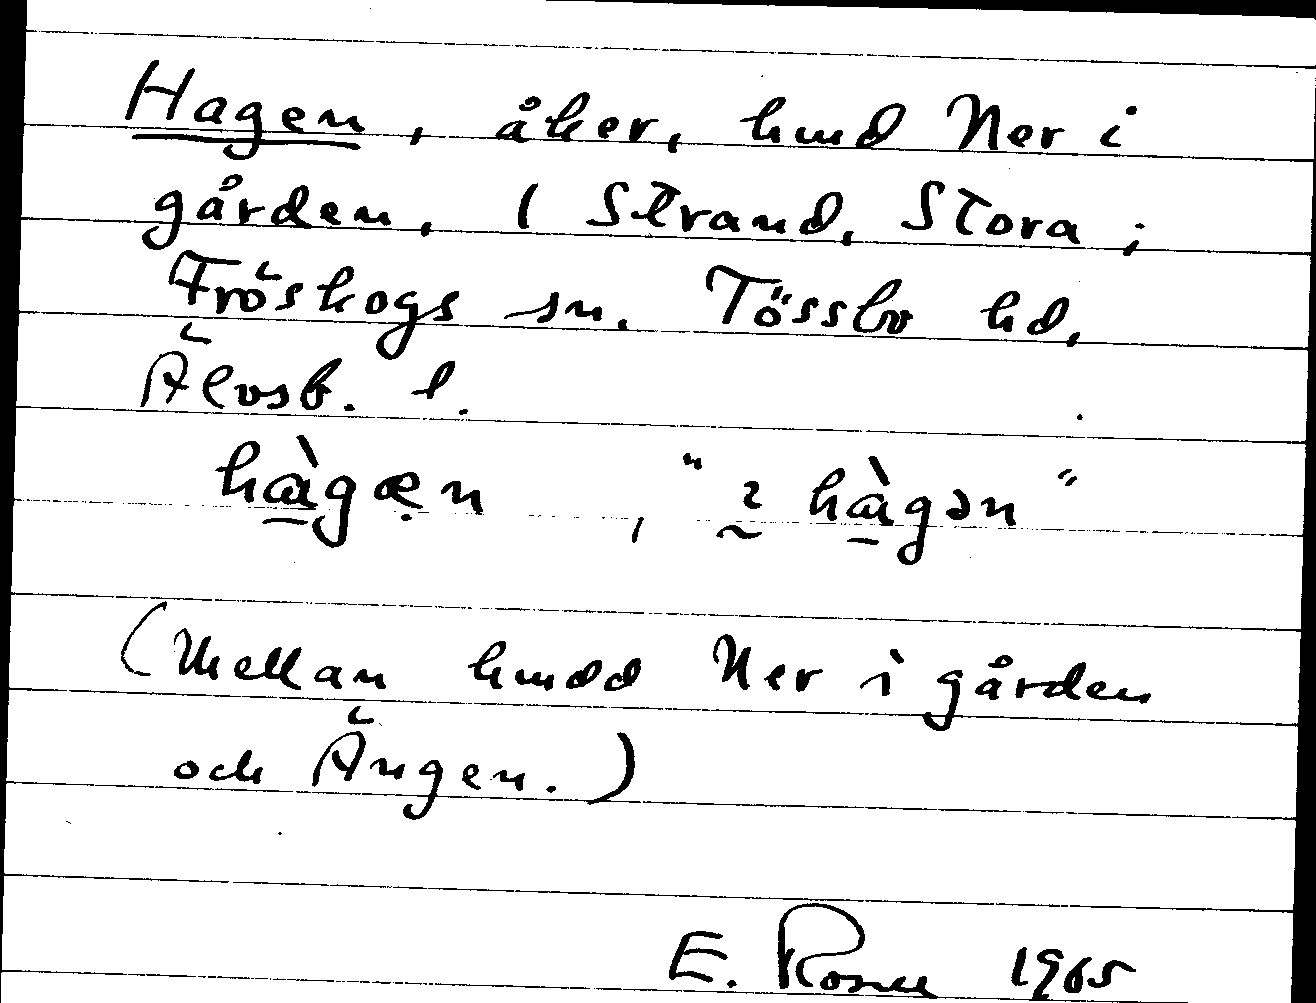 Hagen, åker, hmd Ner i
gården, 1 Strand, Stora;
Fröskogs sn. Tössbo hd,
Älvsb. l.
hàgæn, "ɩ hàgən"
(Mellan hmdd Ner i gården
och Ängen.)
E. Rosne 1965